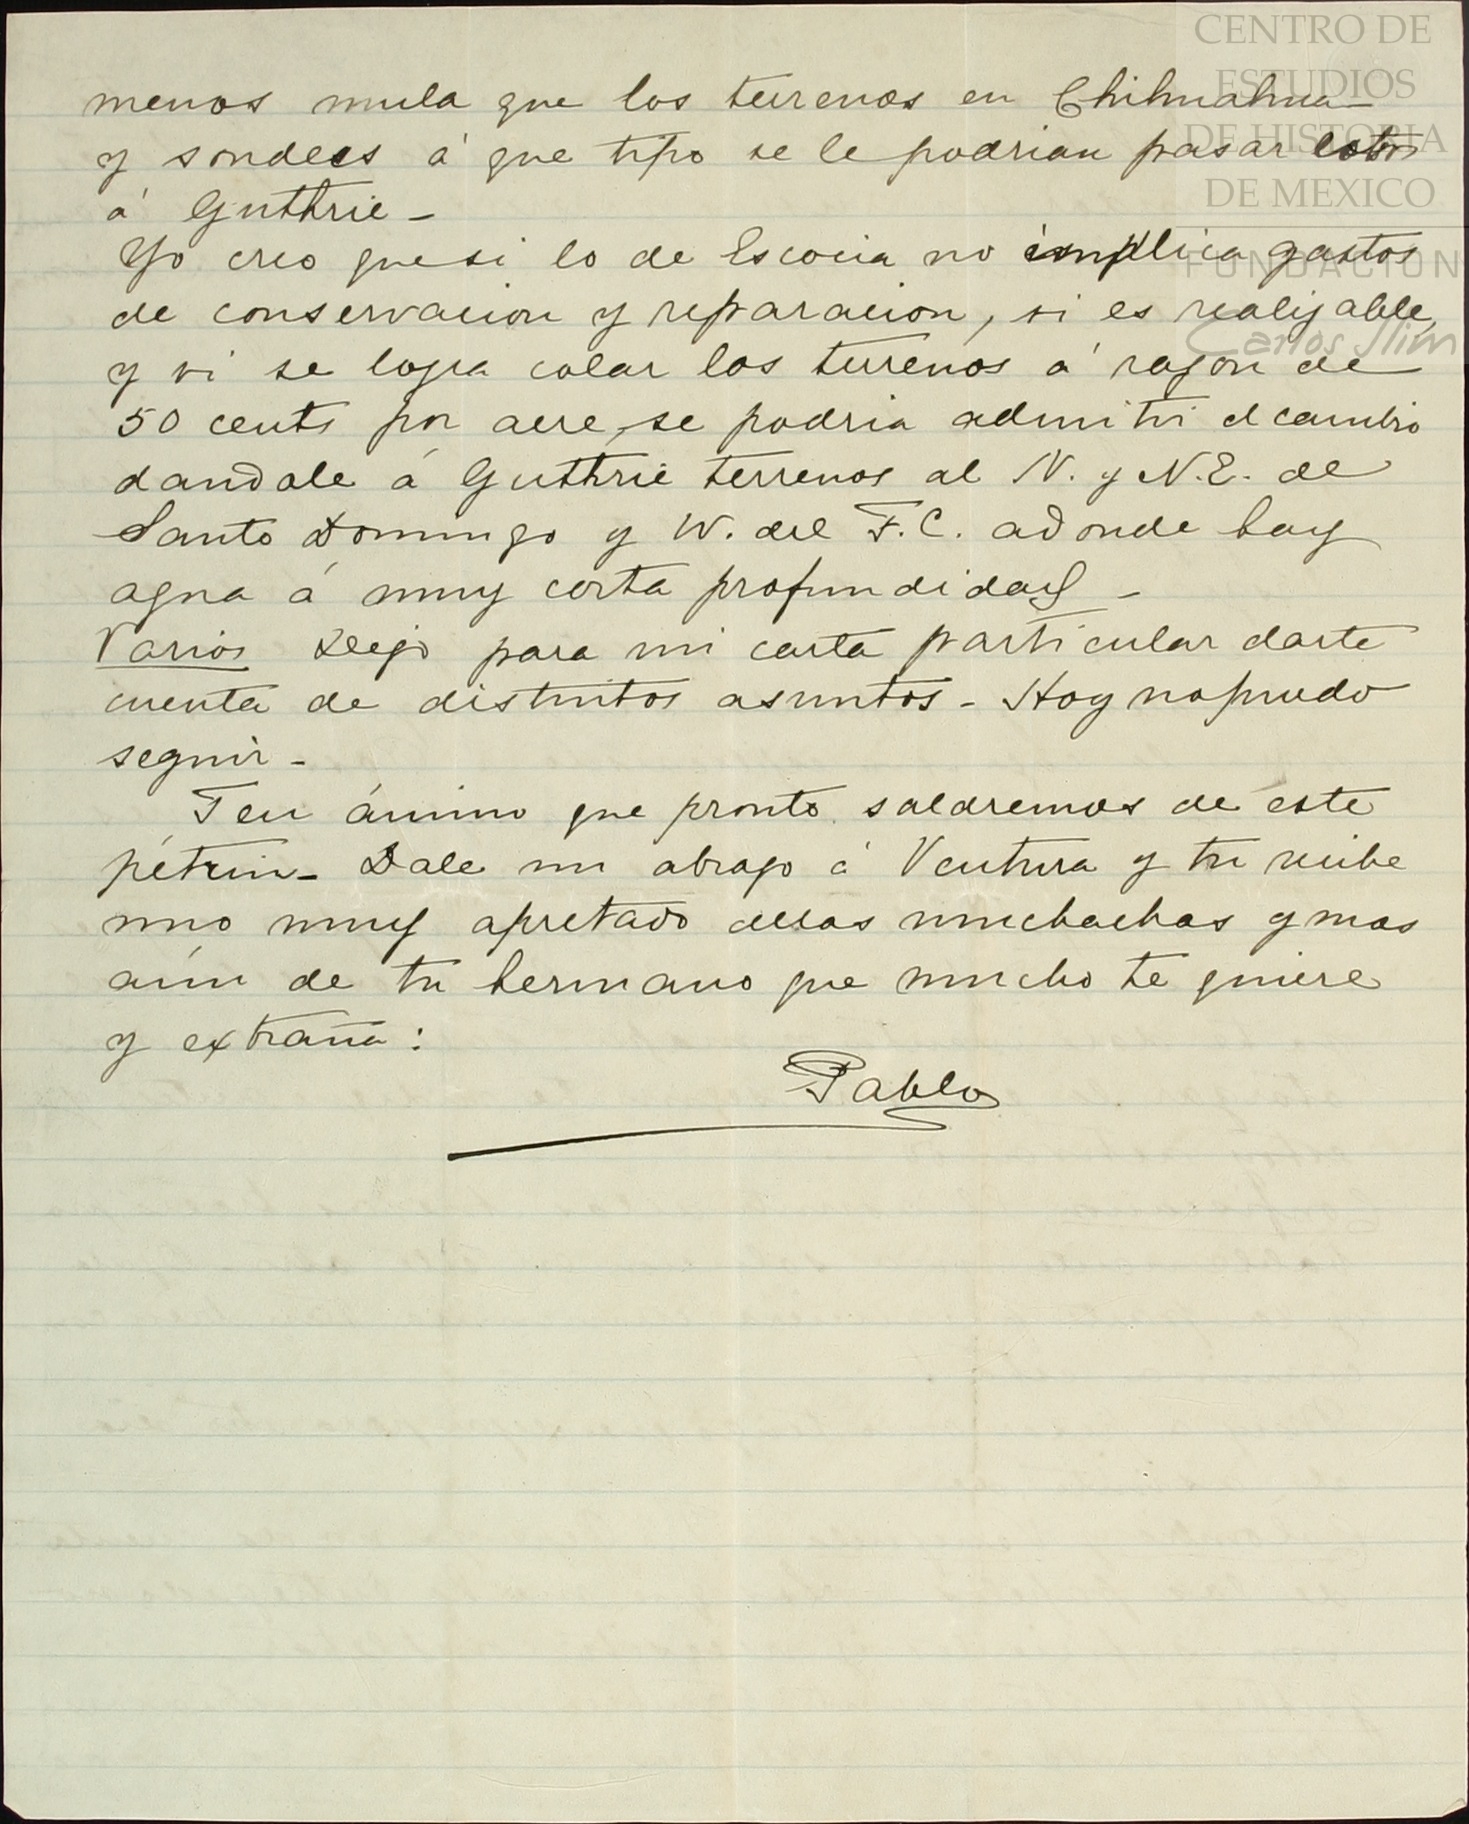 CENTRO DE
ESTUDIOS
DE HISTORIA
DE MEXICO
FUNDACION
Carlos Slim
menos mula que los terrenos en Chihuahua
y sondees á que tipo se le podrian pasar estos
á Guthrie -
Yo creo que si lo de Escocia no implica gastos
de conservacion y reparacion, si es realizable,
y si se logra colar los terrenos á razon de
50 cents por acre, se podria admitir el cambio
dandole á Guthrie terrenos al N. y N.E. de
Santo Domingo y W. del F.C. adonde hay
agua á muy corta profundidad -
Varios Dejo para mi carta particular darte
cuenta de distintos asuntos - Hoy no puedo
seguir -
Ten ánimo que pronto saldremos de este
pétrin - Dale un abrazo á Ventura y tu recibe
uno muy apretado de las muchachas y mas
aún de tu hermano que mucho te quiere
y extraña:
Pablo